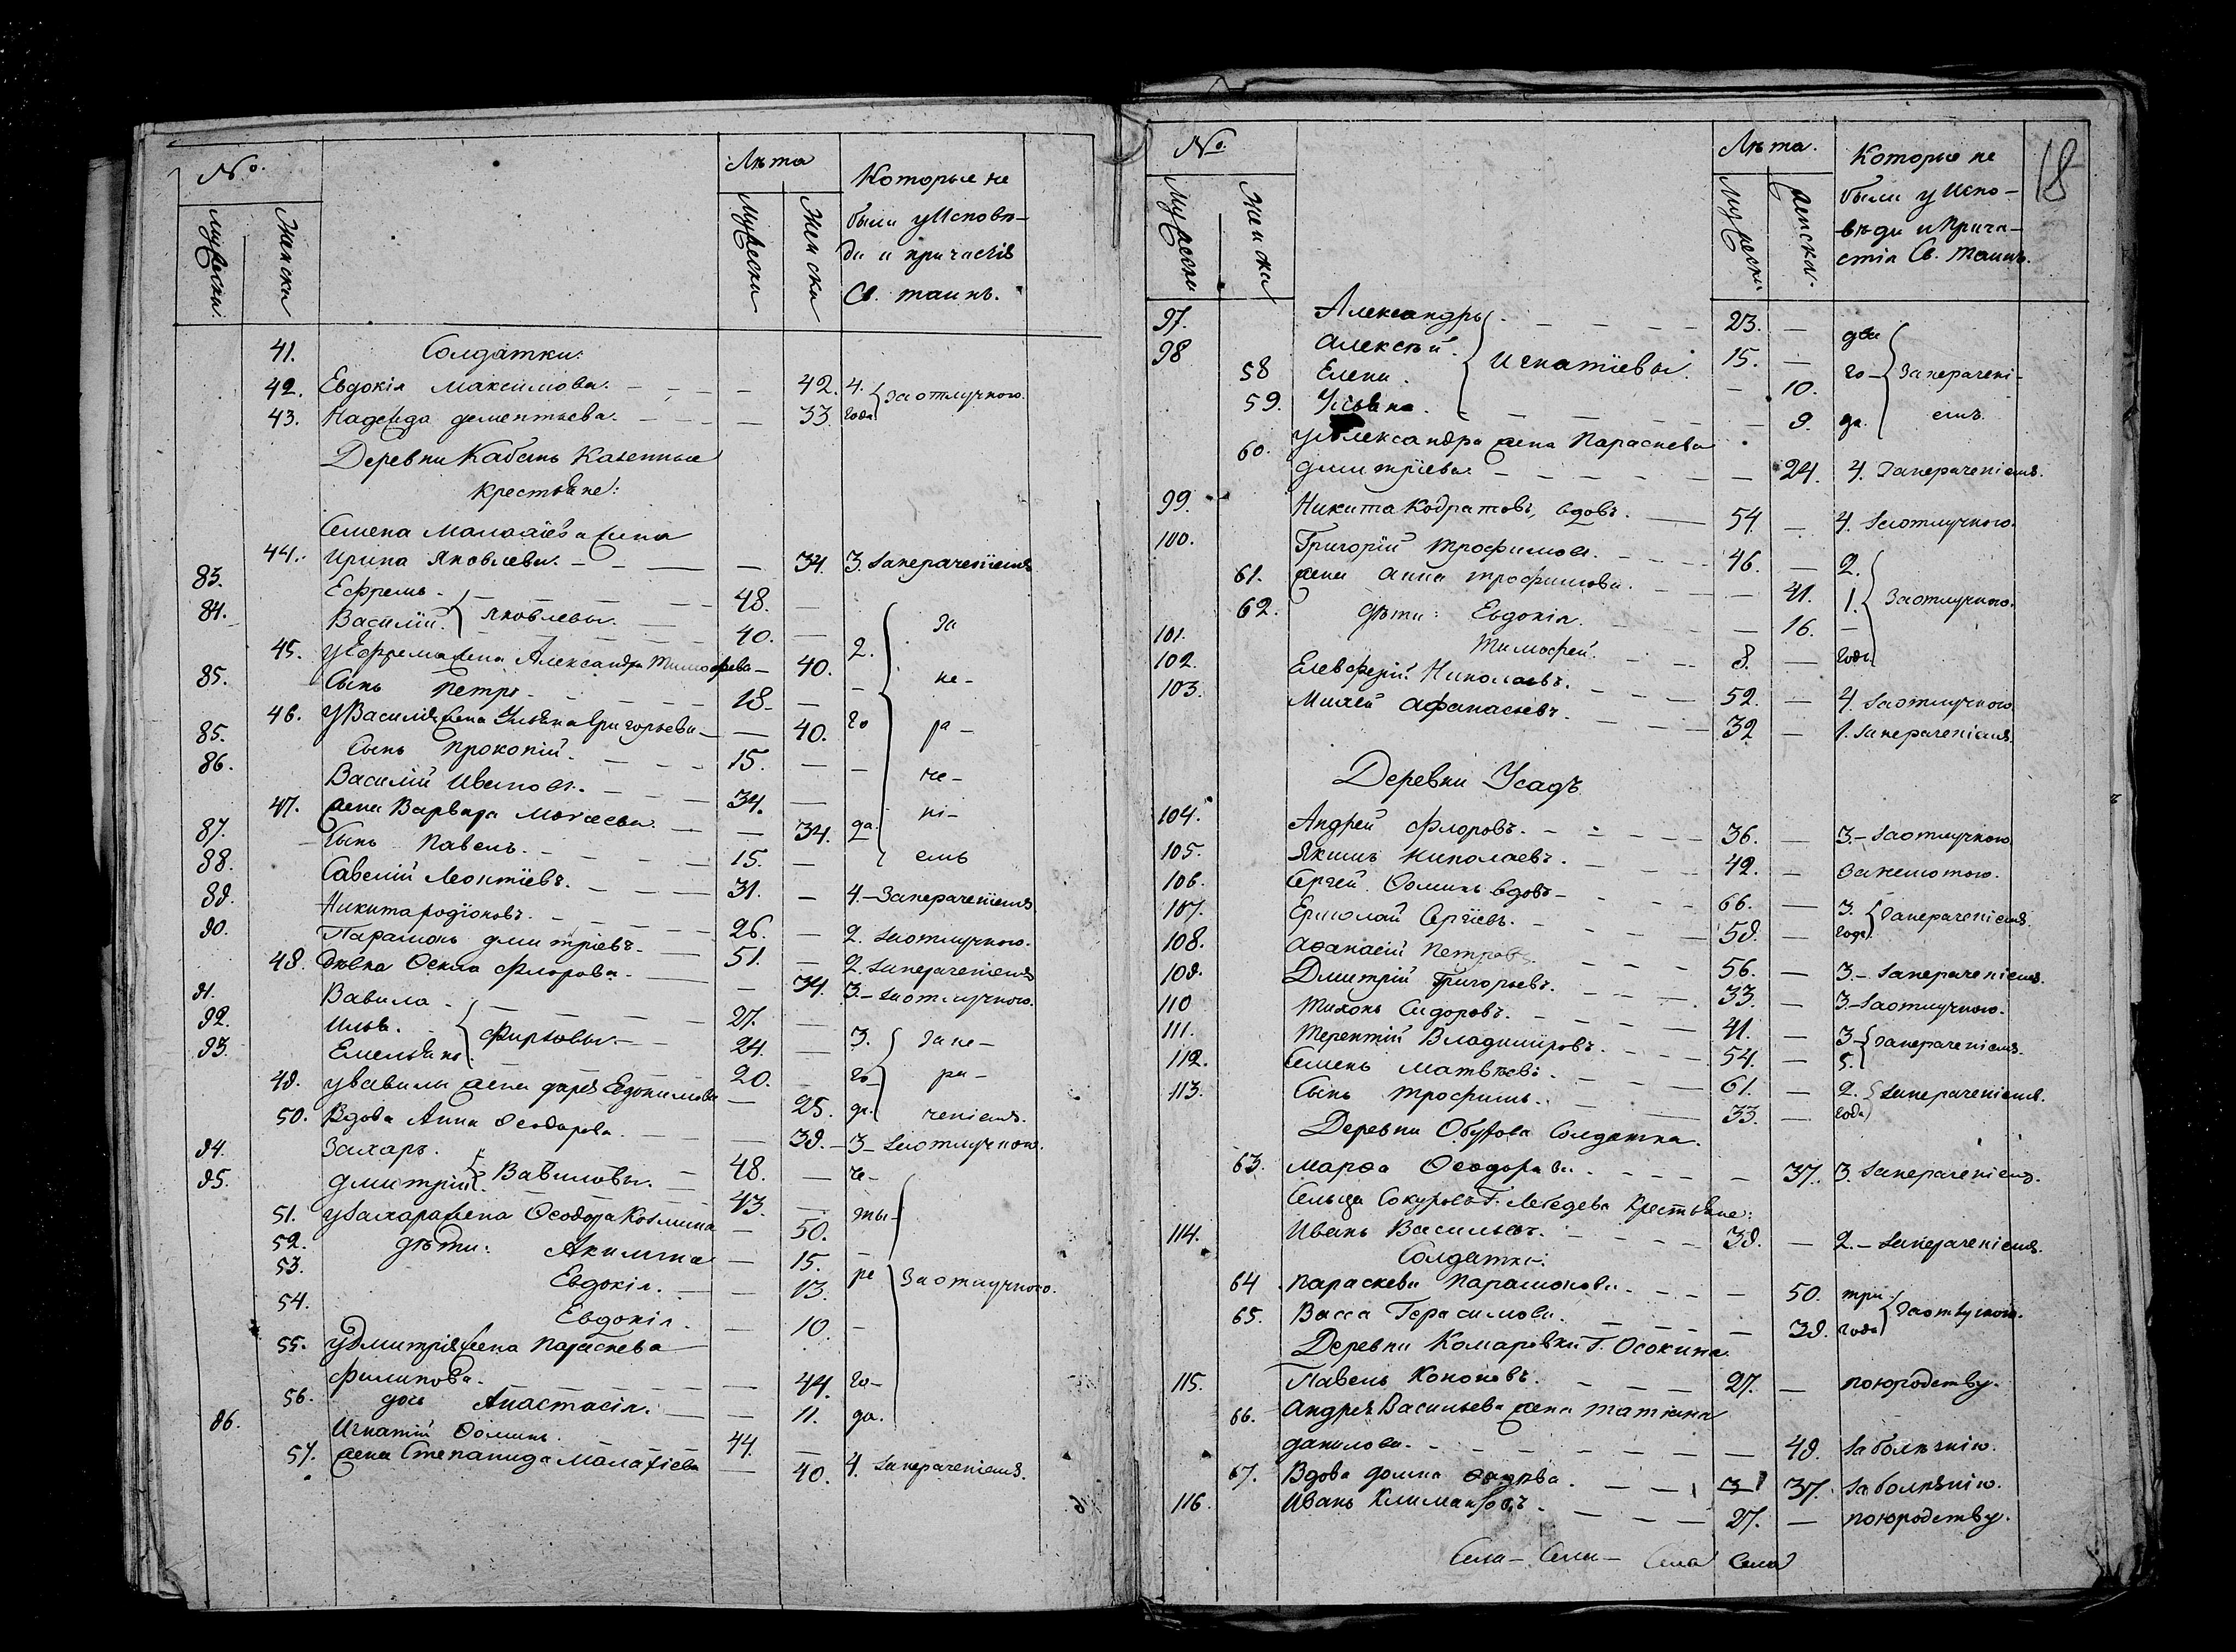 №
Лѣта
Которые не
были у Исповѣ-
ди и причастія
Св. таинъ.
Мужески
Женски
Мужески
Женски
41. Солдатки:
42. Евдокія Максимова. — — 42. 4. За отлучкою.
43. Надежда Дементьева. — — 33. года
Деревни Кабанъ Казенные
Крестьяне:
Семена Малафіева жена
44. Ирина Яковлева. — — 34. 3. За нераченіемъ
83. Ефремъ. 48. —
84. Василій. Яковлевы. 40. — За
45. У Ефрема жена Александра Тимофеева — 40. 2.
85. Сынъ Петръ. 18. — — не-
46. У Василія жена Ульяна Григорьева — — 40. го ра-
85. Сынъ Прокопій. 15. — —
86. Василій Ивановъ. 34. — че-
47. жена Варвара Моисеева. — — 34. да. ні-
87. Сынъ Павелъ. 15. — емъ
88. Савелій Леонтіевъ. 31. — 4. — За нераченіемъ
89. Никита Родіоновъ. 26. — 2. За отлучкою.
90. Парамонъ Дмитріевъ. 51. — 2. За нераченіемъ
48. Дѣвка Фекла Флорова. — 34. 3. — За отлучкою.
91. Вавила. 27. —
92. Илья. Фирсовы. 24. — 3. За не-
93. Емельянъ. 20. — го- ра-
49. У Вавилы жена Дарья Евдокимова — 25. да. ченіемъ.
50. Вдова Анна Феодорова. — 39. — 3 — За отлучкою.
94. Захаръ. 48. — че-
95. Дмитрій. Вавиловы. 43. — ты-
51. У Захара жена Феодора Козмина — 50.
52. дѣти: Акилина — 15. —
53. Евдокія. — — 13. ре За отлучкою.
54. Евдокія. — 10. —
55. У Дмитрія жена Параскева
Филипова. — 44. го-
56. дочь Анастасія. — — 11. да.
96. Игнатій Фоминъ. 44. —
57. жена Степанида Малафіева — 40. 4. За нераченіемъ.
№
Лѣта.
Которые не
были у Испо-
вѣди и Прича-
стія Св. Таинъ.
18
Мужески
Женски
Мужески
Женски.
97. Александръ. 23. — два
98 Алексѣй. Игнатіевы. 15. —
58 Елена. — 10. го- За нерачені-
59. Ульяна. — 9. да. емъ.
60. У Александра жена Параскева
Дмитріева. — 24. 4. За нераченіемъ.
99. Никита Кодратовъ, вдовъ. — 54. — 4. За отлучкою.
100. Григорій Трофимовъ. 46. — 2.
61. жена Анна Трофимова. — 41. 1. За отлучкою.
62. дѣти: Евдокія. — 16. —
101. Тимофей. 8. — года
102. Елевферій Николаевъ. 52. — 4. За отлучкою
103. Михей Афанасьевъ. 32 — 1. За нераченіемъ.
Деревни Усадъ
104. Андрей Флоровъ. 36. — 3. — За отлучкою.
105. Якимъ Николаевъ. 42. —
106. Сергей Фоминъ вдовъ — 66. — 3. За нераченіемъ.
107. Ермолай Сергіевъ. 59. — года
108. Афанасій Петровъ. 56. — 3. — За нераченіемъ.
109. Дмитрій Григорьевъ. 33. — 3. — За отлучкою.
110 Тихонъ Сидоровъ. 41. — 3. За нераченіемъ.
111. Терентій Владиміровъ. 54. — 5.
112. Семенъ Матвѣевъ. 61. — 2. За нераченіемъ.
113. Сынъ Трофимъ. 33. — года
Деревни Солдатка.
63. Марфа Феодорова. — 37. 3. За нераченіемъ.
Сельца Сокуровъ Г. Лебедева Крестьяне:
114. Иванъ Васильевъ. 39. — 2. — За нераченіемъ.
Солдатки:
64. Параскева Парамонова. — 50. три За отлучкою.
65. Васса Герасимова. — 39. года
Деревни Комаровки Г. Осокина.
115. Павелъ Кононовъ. 27. — по юродству.
66. Андрея Васильева жена Татіана
Данилова. — 49. За болѣзнію.
67. Вдова Домна 37. За болѣзнію.
116. Иванъ Климантовъ. 27. — по юродству.
Села — Села — Села Села